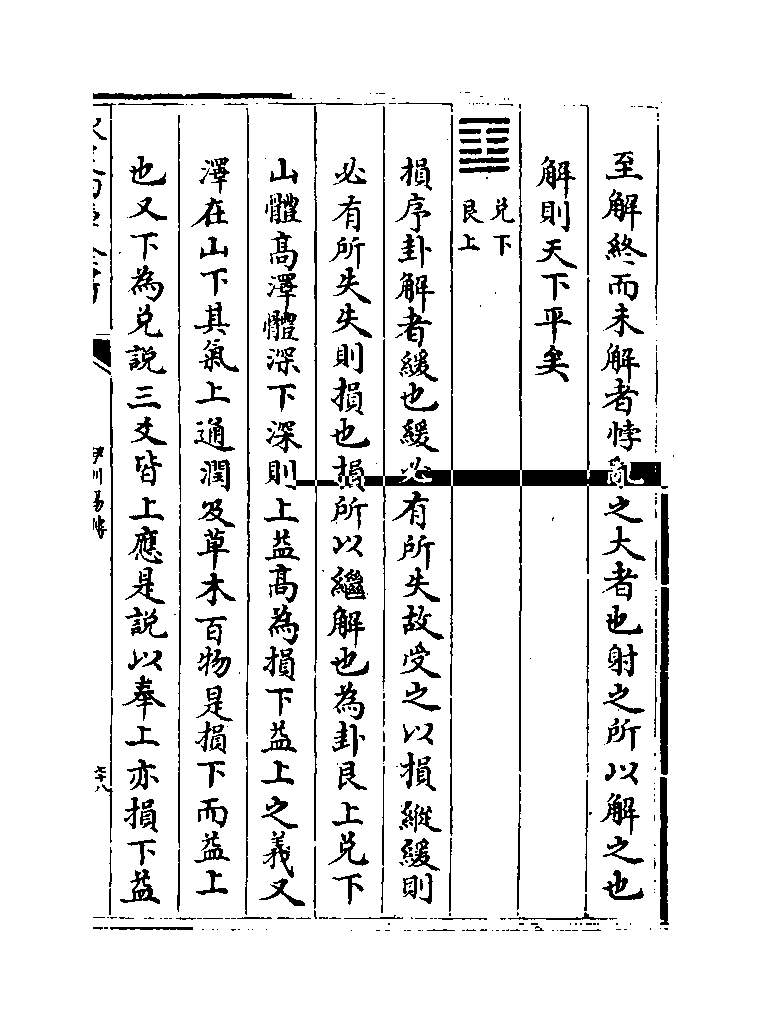 至解終而未解者悖亂之大者也射之所以解之也
解則天下平矣
䷨兌下
艮上
損序卦解者緩也緩必有所失故受之以損縱緩則
必有所失失則損也損所以繼解也為卦艮上兌下
山體高澤體深下深則上益高為損下益上之義又
澤在山下其氣上通潤及草木百物是損下而益上
也又下為兌説三爻皆上應是説以奉上亦損下益
伊川易傳
六十八